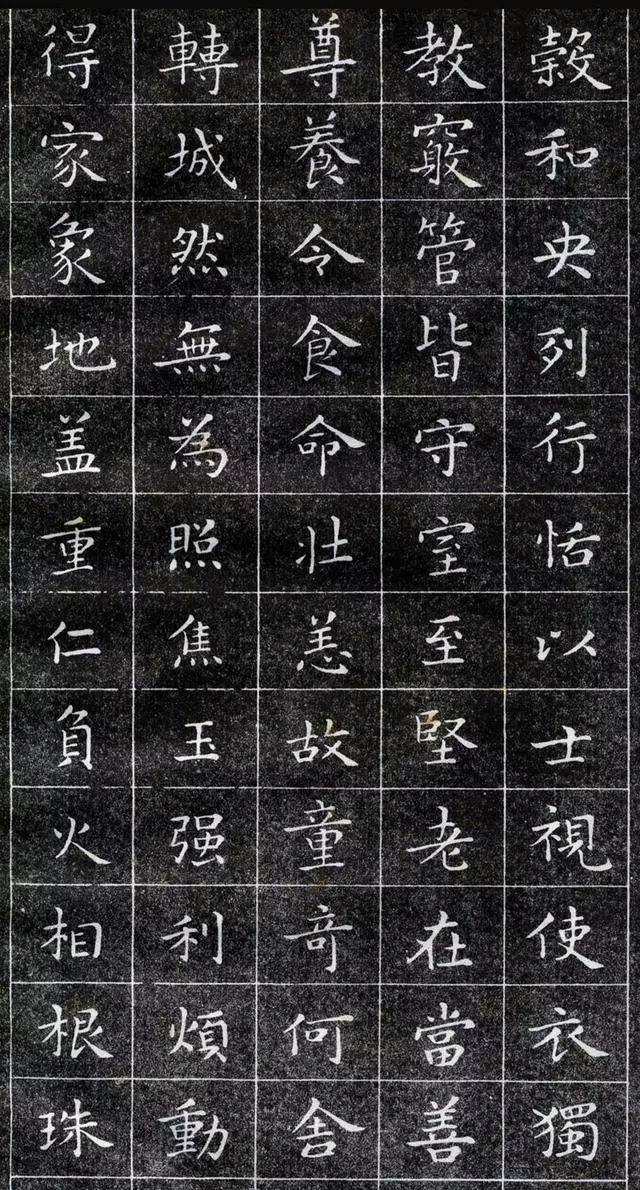 穀和央列行恬以士視使衣獨
教竅管皆守室至堅老在當善
尊養令食命壮恙故童奇何舍
轉城然無為照焦玉强利煩動
得家象地盖重仁負火相根珠